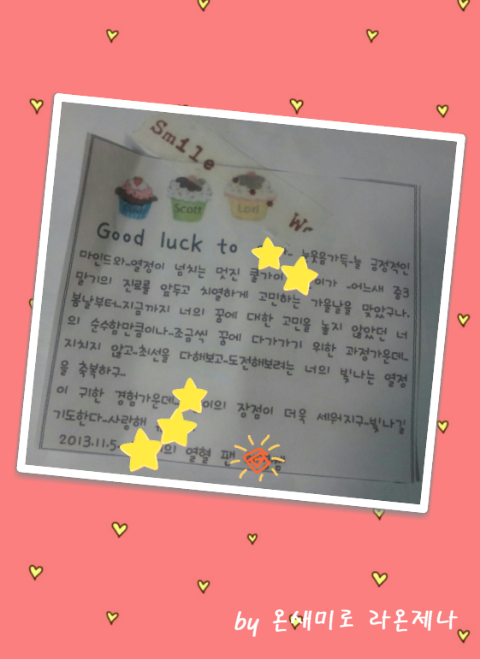 Smile
Scott Lori
Good luck to
웃음가득~늘 긍정적인
마인드와~열정이 넘치는 멋진 이가 ~어느새 중3
말기의 진로를 앞두고 치열하게 고민하는 가을날을 맞았구나~
봄날부터~지금까지 너의 꿈에 대한 고민을 놓지 않았던 너
의 순수함만큼이나~조금씩 꿈에 다가가기 위한 과정가운데~
지치지 않고~최선을 다해보고~도전해보려는 너의 빛나는 열정
을 축복하구~
이 귀한 경험가운데~ 이의 장점이 더욱 세워지구~빛나길
기도한다~사랑해
2013.11.5. 의 열혈 팬
by 온새미로 라온제나